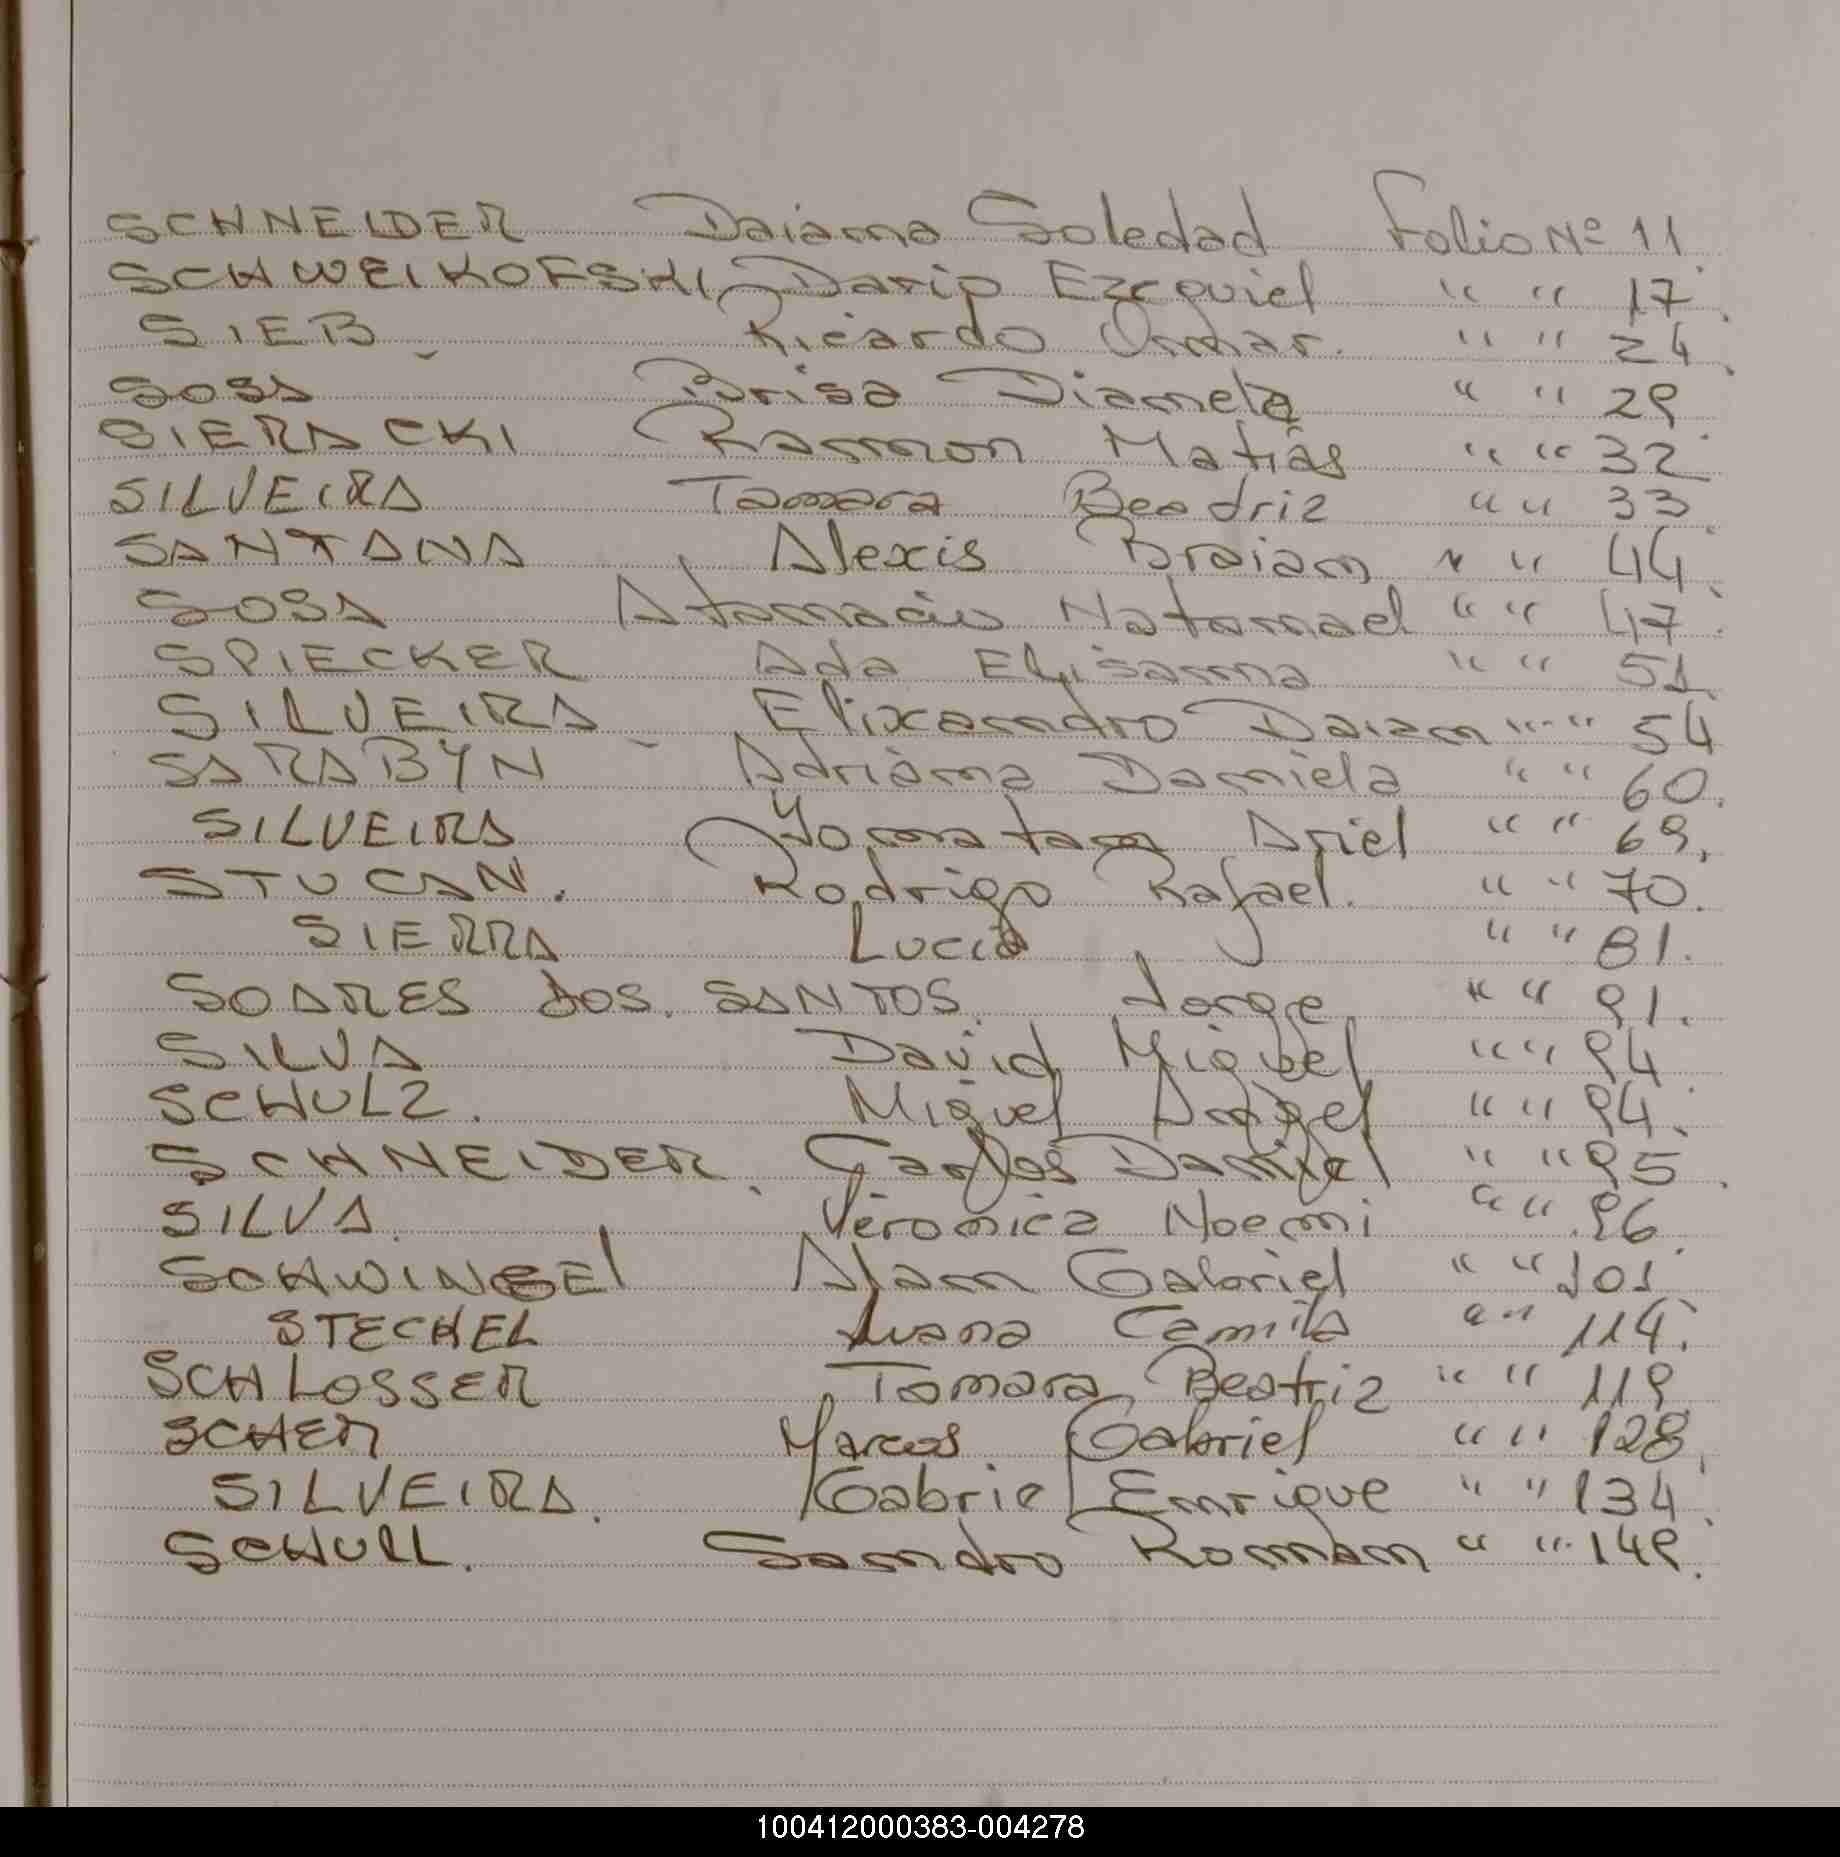 SCHNEIDER Daiana Soledad Folio Nº 11.
SCHWEIKOFSKI Dario Ezequiel " " 17.
SIEB. Ricardo Omar. " " 24.
SOSA Brisa Diamela " " 29
SIERACKI Ramon Matias " " 32
SILVEIRA Tamara Beadriz " " 33.
SANTANA Alexis Braian " " 44.
SOSA Atanacio Natanael " " 47.
SPIECKER Ada Elisanna " " 51
SILVEIRA Elixandro Daian " " 54
SARABYN Adriana Daniela " " 60.
SILVEIRA Yonatan Ariel " " 69.
STUCAN. Rodrigo Rafael. " " 70.
SIERRA Lucia " " 81.
SOARES DOS. SANTOS. Jorge " " 91.
SILVA David Miguel " " 94.
SCHULZ. Miguel Angel " " 94.
SCHNEIDER. Carlos Daniel " " 95.
SILVA. Veronica Noemi " " 96.
SCHWINGEl Alan Gabriel " " 101.
STECHEL Luana Camila " " 114.
SCHLOSSER Tamara Beatriz " " 119
SCHER Marcos Gabriel " " 128.
SILVEIRA. Gabriel Enrique " " 134.
SCHULL. Sandro Roman " " 149.
100412000383-004278